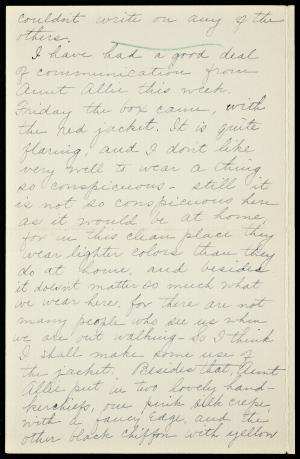 couldn't write on any of the
others.
I have had a good deal
of communication from
Aunt Allie this week.
Friday the box came, with
the red jacket. It is quite
flaring, and I don't like
very well to wear a thing
so conspicuous - still it
is not so conspicuous here
as it would be at home,
for in this clean place they
wear lighter colors than they
do at home, and besides
it doesn't matter so much what
we wear here, for there are not
many people who see us when
we are out walking - So I think
I shall make some use of
the jacket. Besides that, Aunt
Allie put in two lovely hand-
kerchiefs, one pink silk crepe,
with a fancy edge, and the
other black chiffon with yellow